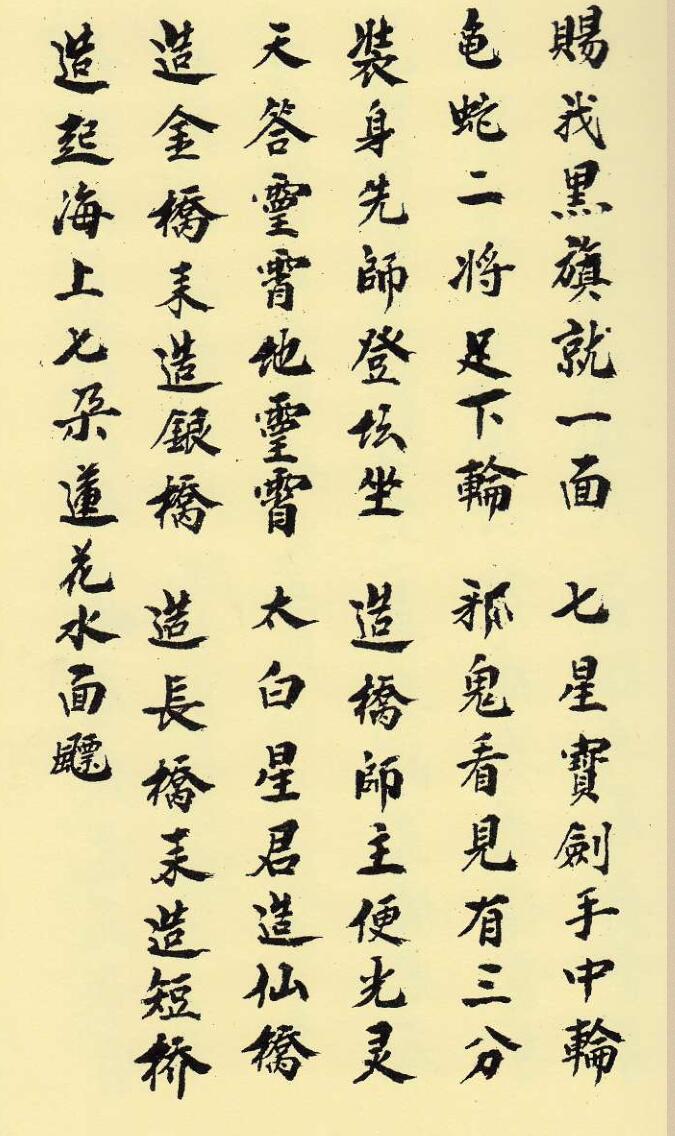 賜我黑旗就一面 七星寶劍手中輪
龟蛇二将足下輪 邪鬼看見有三分
裝身先師登坛坐 造橋師主便光灵
天答霊霄地霊霄 太白星君造仙橋
造金橋来造銀橋 造長橋来造短桥
造起海上七朵蓮花水面飄